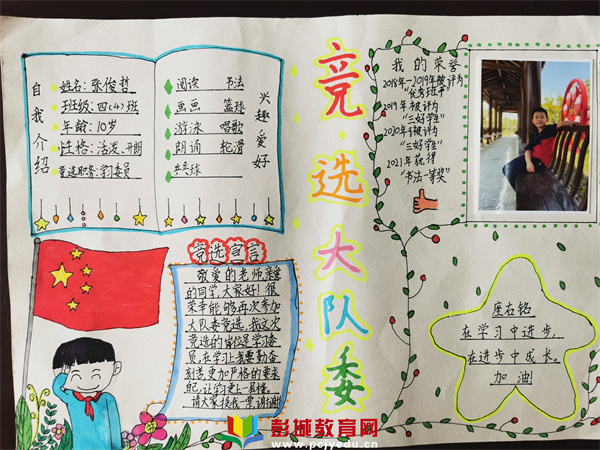 自我介绍
姓名:张俊哲
班级:四(4)班
年龄:10岁
性格:活泼、开朗
竞选职务:学习委员
兴趣爱好
阅读 书法
画画 篮球
游泳 唱歌
朗诵 轮滑
乒乓球
竞选大队委
我的荣誉
2018年-2019年被评为
"优秀班干"
2019年被评为
"三好学生"
2020年被评为
"三好学生"
2021年获得
"书法一等奖"
竞选宣言
敬爱的老师,亲爱
的同学,大家好!很
荣幸能够再次参加
大队委竞选,我这次
竞选的岗位是学习委
员,在学习上我要勤奋
刻苦,更加严格的要求
自己,让学习更上一层楼。
请大家投我一票,谢谢!
座右铭
在学习中进步,
在进步中成长。
加油!
彭城教育网
www.pcjyedu.cn